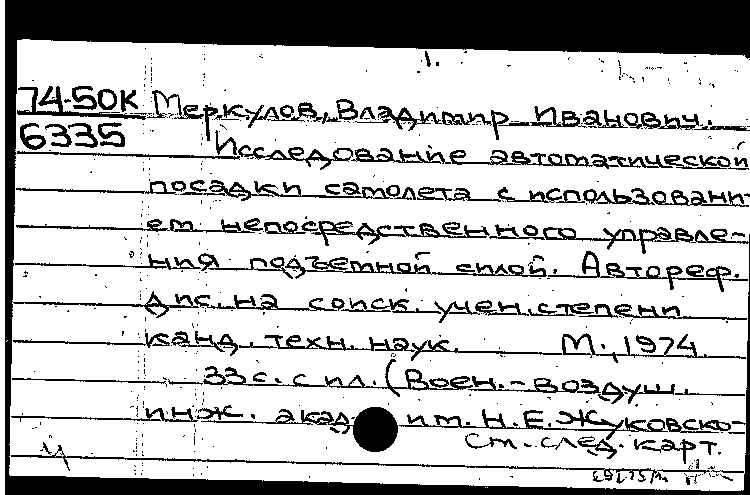 1.
74-50К Меркулов, Владимир Иванович.
6335 Исследование автоматической
посадки самолета с использовани-
ем непосредственного управле-
ния подъемной силой. Автореф.
дис. на соиск. учен. степени
канд. техн. наук. М., 1974.
33 с. с ил. (Воен.-воздуш.
инж. акад им. Н.Е. Жуковско-
см. след. карт.